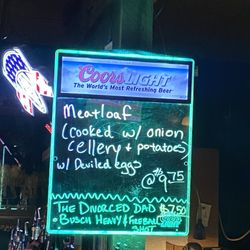 Coors LIGHT
The World's Most Refreshing Beer
Meatloaf
(cooked w/ onion
cellery + potatoes
w/ Deviled eggs
@ $9.75
THE DIVORCED DAD $7.50
BUSCH HEAVY & FIREBALL
SHOT